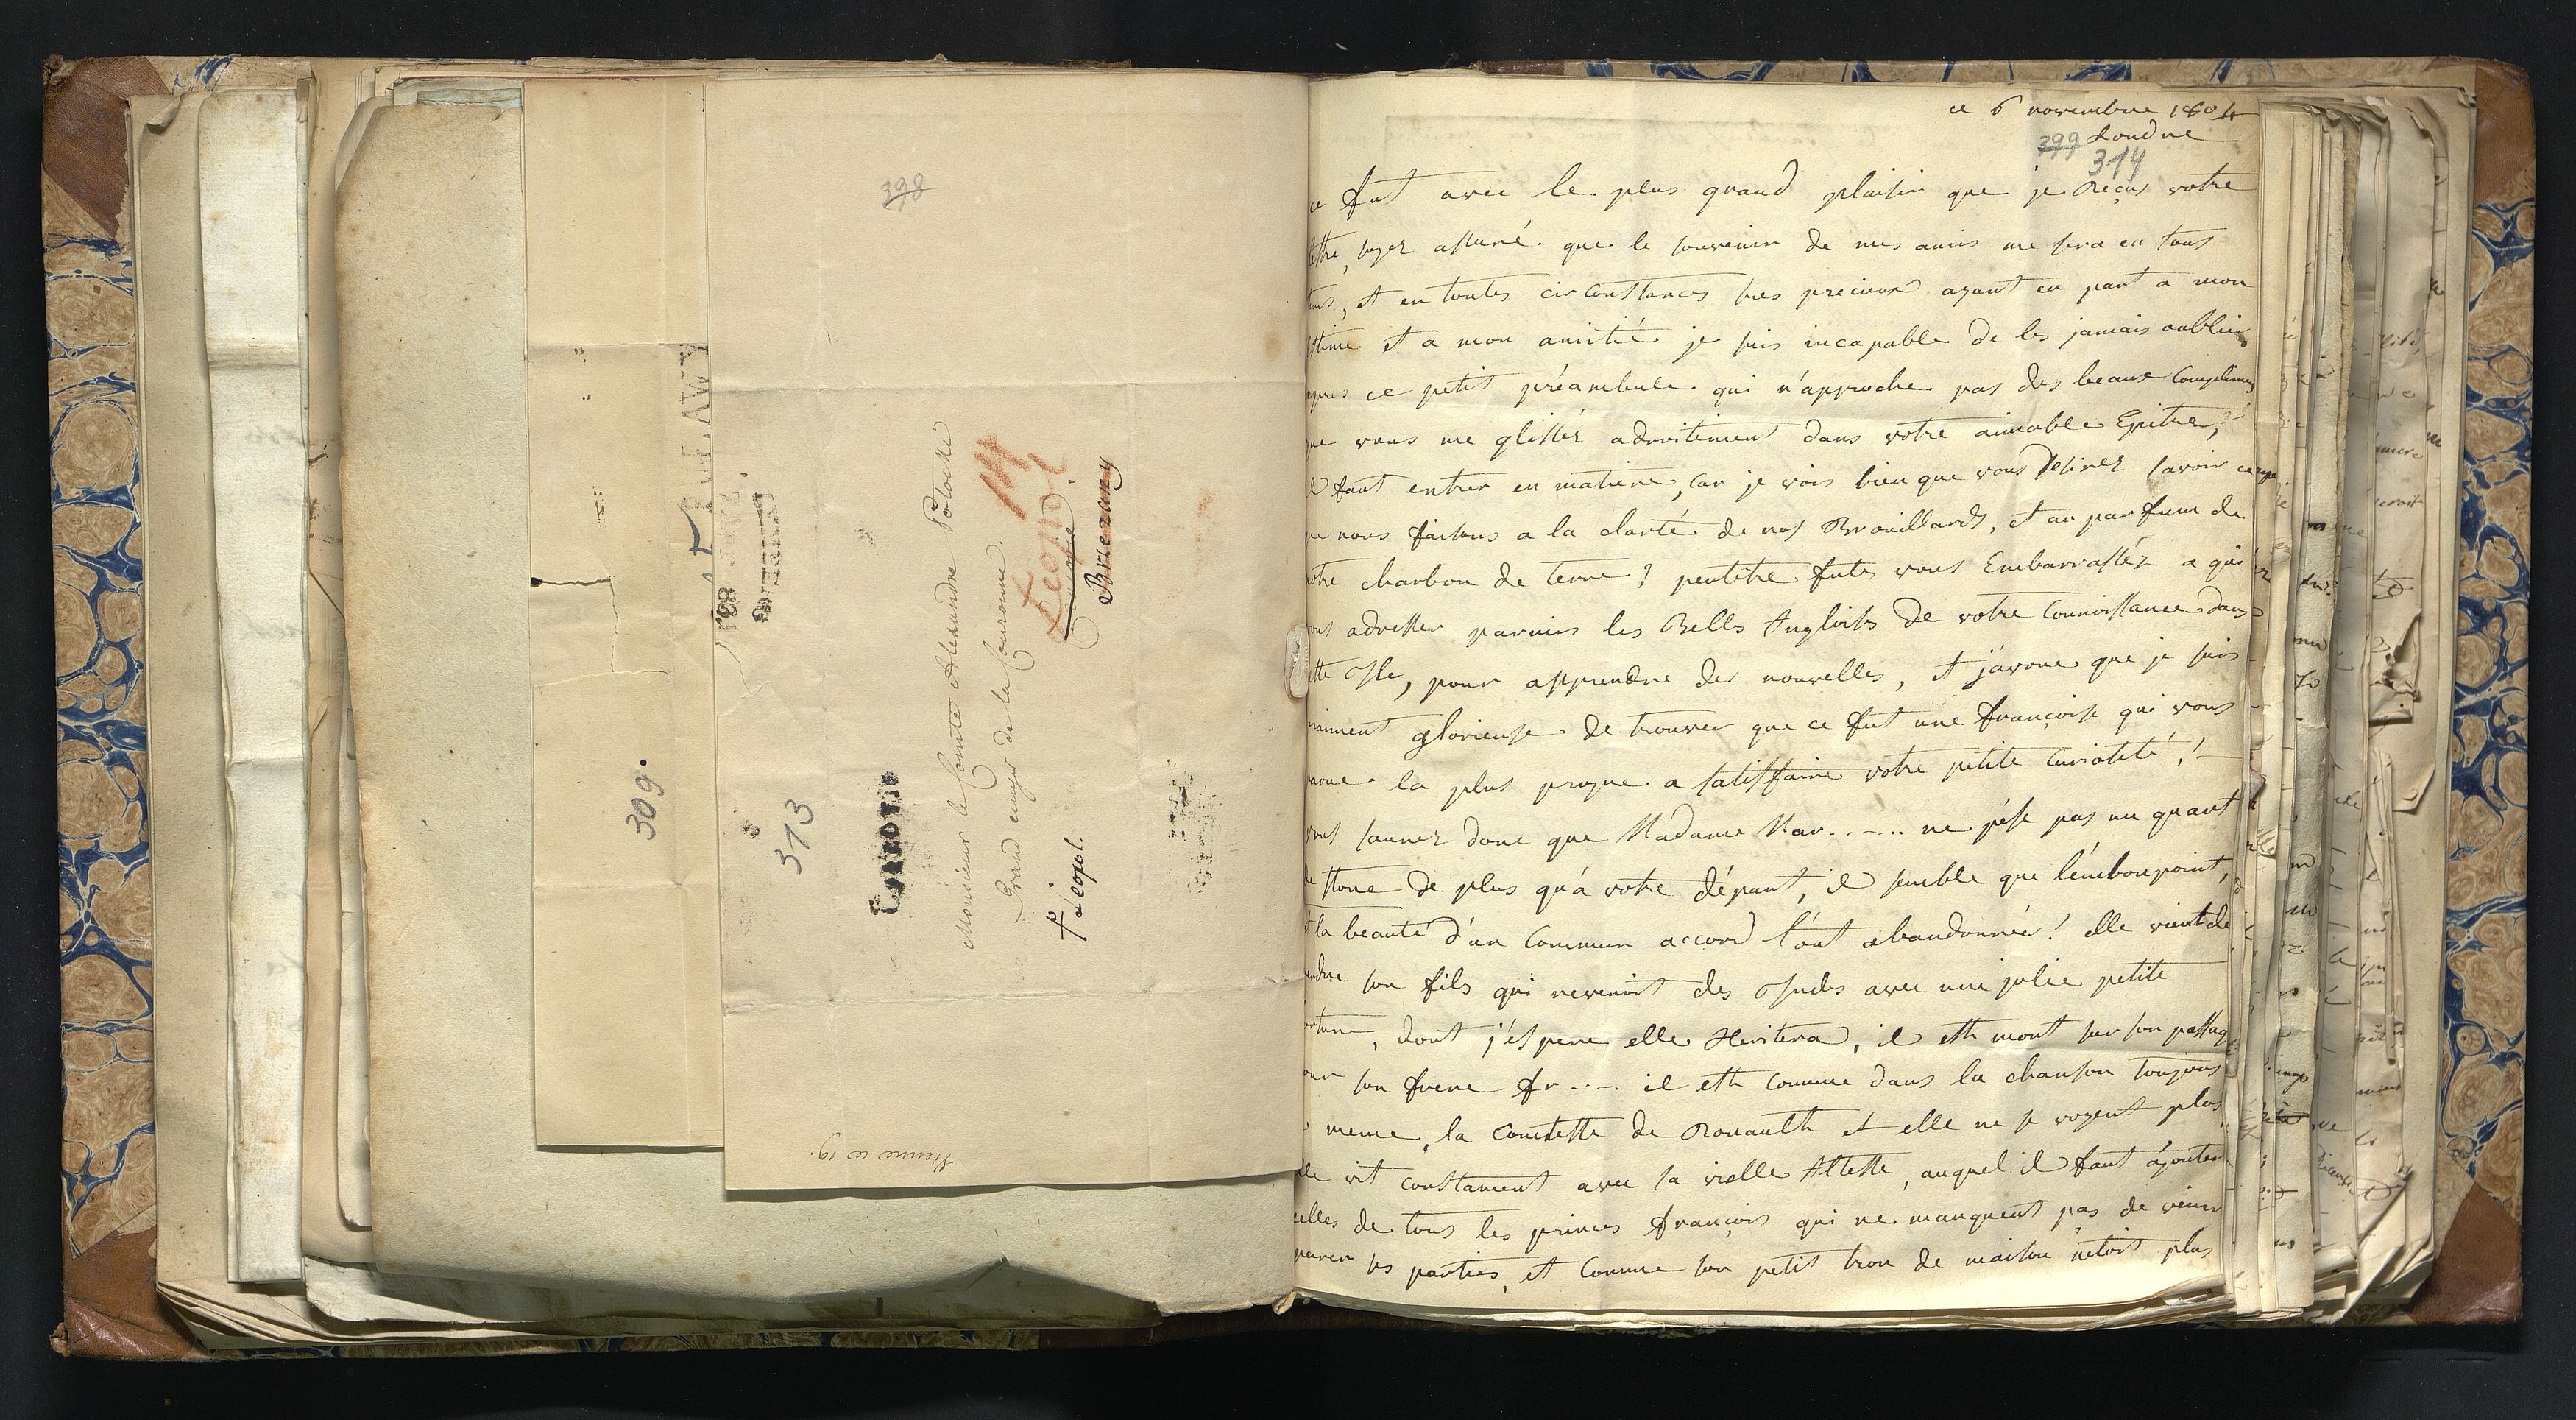 398
309.
313
Monsieur le Comte Alexandre Potocki
Grand ecuyer de la Couronne.
14
Leopol
Brzezany
p Léopol.
Vienne ce 19.
ce 6 novembre 1804
Londre
399
314
ce fut avec le plus grand plaisir que je reçus votre
lettre, soyez assuré que le souvenir de mes amis me sera en tous
tems, et en toutes circonstances tres precieux ayant eu part a mon
estime et a mon amitié je suis incapable de les jamais oublier
apres ce petit préambule qui n'approche pas des beaux Complimens
que vous me glissez adroitement dans votre aimable Epitre,
il faut entrer en matiere, car je vois bien que vous desirez savoir ce que
nous faisons a la clarté de nos Brouillards, et au parfum de
notre charbon de terre? peutetre futes vous Embarrassez a qui
vous adresser parmis les Belles Angloises de votre Connoissance dans
cette Isle, pour apprendre des nouvelles, et j'avoue que je suis
vraiment glorieuse de trouver que ce fut une françoise qui vous
parue la plus propre a satisfaire votre petite Curiosité,!
vous saurez donc que Madame Mar...... ne pése pas un quart
de stone de plus qu'a votre départ, il semble que l'embonpoint,
et la beauté d'un Commun accord l'ont abandonnée! elle vient de
perdre son fils qui revenoit des Indes avec une jolie petite
fortune, dont j'espere elle Heritera, il est mort sur son passage
pour son frere fr.... il est comme dans la chanson toujours
le meme, la Comtesse de Rouault et elle ne se voyent plus,
elle vit constament avec sa vielle Altesse, auquel il faut ajouter
celles de tous les princes françois qui ne manquent pas de venir
parer ses parties, et Comme son petit trou de maison n'etoit plus